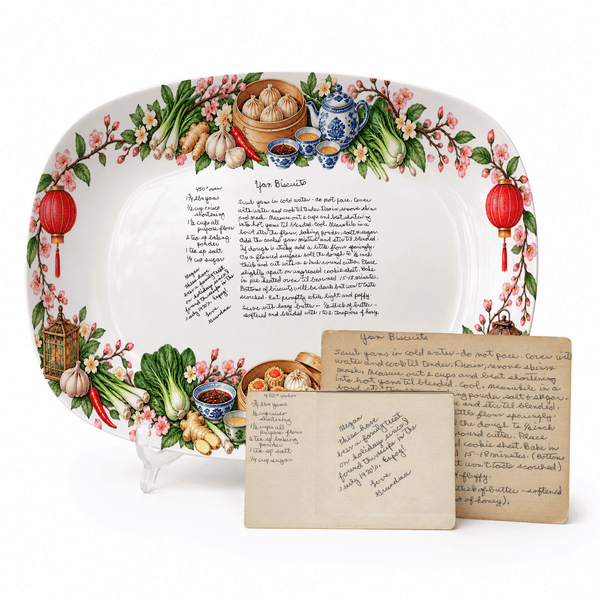 Yam Biscuits
450° oven
1 ½ lbs yams
½ cup crisco
shortening
1 ½ cups all
purpose flour
2 tsp baking
powder
1 tsp salt
¼ cup sugar
Megan
these have
been a family treat
on holidays since I
found the recipe in the
early 1970's. Enjoy!
Love
Grandma
Scrub yams in cold water - do not pare. Cover
with water and cook til tender. Drain, remove skins
and mash. Measure out 2 cups and beat shortening
into hot yams til blended. Cool. Meanwhile in a
bowl stir the flour, baking powder, salt & sugar.
Add the cooled yam mixture and stir til blended.
If dough is sticky add a little flour sparingly.
On a floured surface roll the dough to ½ inch
thick and cut with a 2 inch round cutter. Place
slightly apart on ungreased cookie sheet. Bake
in pre heated oven til browned 15-18 minutes.
Bottoms of biscuits will be dark but won't taste
scorched. Eat promptly while light and fluffy.
Serve with honey butter - ½ stick of butter -
softened and blended with 1 to 2 teaspoons of honey.
Yam Biscuits
Scrub yams in cold water - do not pare. Cover with
water and cook til tender. Drain, remove skins &
mash. Measure out 2 cups and beat shortening
into hot yams til blended. Cool. Meanwhile in a
powder, salt & sugar.
and stir til blended.
little flour sparingly.
the dough to ½ inch
round cutter. Place
cookie sheet. Bake in
15-18 minutes. (Bottoms
won't taste scorched)
fluffy.
stick of butter - softened
of honey).
450° oven
1 ½ lbs yams
½ cup crisco
shortening
1 ½ cups all
purpose flour
2 tsp baking
powder
1 tsp salt
¼ cup sugar
Megan
these have
been a family treat
on holidays since I
found the recipe in the
early 1970's. Enjoy!
Love
Grandma